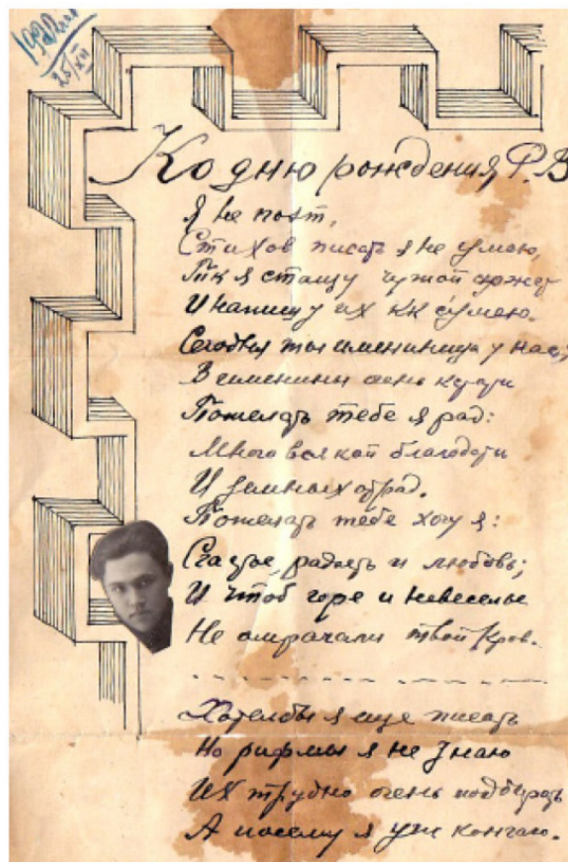 25/XII
Ко дню рождения Р.В
Я не поэт,
Стихов писать я не умею,
Тк я стащу чужой сюжет
И напишу их кк сумею.
Сегодня ты именинница у нас,
В именины очень кстати
Пожелать тебе я рад:
Много всякой благодати
И земных отрад.
Пожелать тебе хочу я:
Счастье, радость и любовь;
И чтоб горе и невеселье
Не омрачали твой Кров.
Хотелбы я еще писать
Но рифмы я не знаю
Их трудно очень подбирать
А посему я уж кончаю.